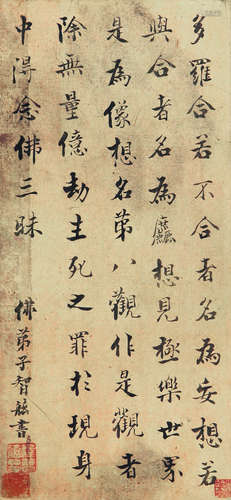 多羅合若不合者名為妄想若
與合者名為麤想見極樂世界
是為像想名第八觀作是觀者
除無量億劫生死之罪於現身
中得念佛三昧
佛弟子智𧫒書